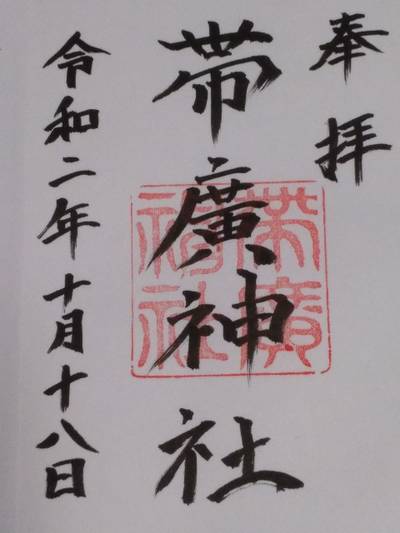 奉拝
帯廣神社
令和二年十月十八日
帯廣神社